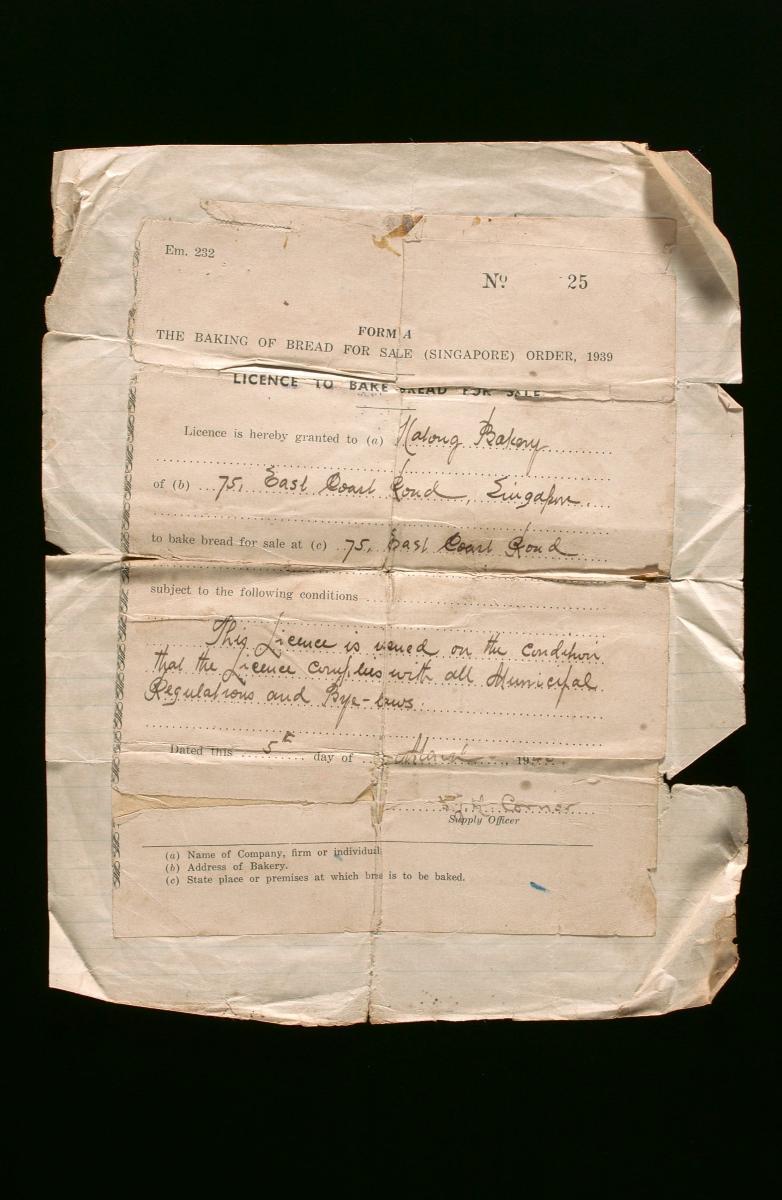 Em. 232
Nº 25
FORM A
THE BAKING OF BREAD FOR SALE (SINGAPORE) ORDER, 1939
LICENCE TO BAKE BREAD FOR SALE
Licence is hereby granted to (a) Katong Bakery
of (b) 75, East Coast Road, Singapore
to bake bread for sale at (c) 75, East Coast Road
subject to the following conditions
This Licence is issued on the condition
that the Licence complies with all Municipal
Regulations and Bye-laws.
Dated this 5th day of March 19
E.J.H. Corner
Supply Officer
(a) Name of Company, firm or individual
(b) Address of Bakery.
(c) State place or premises at which bread is to be baked.